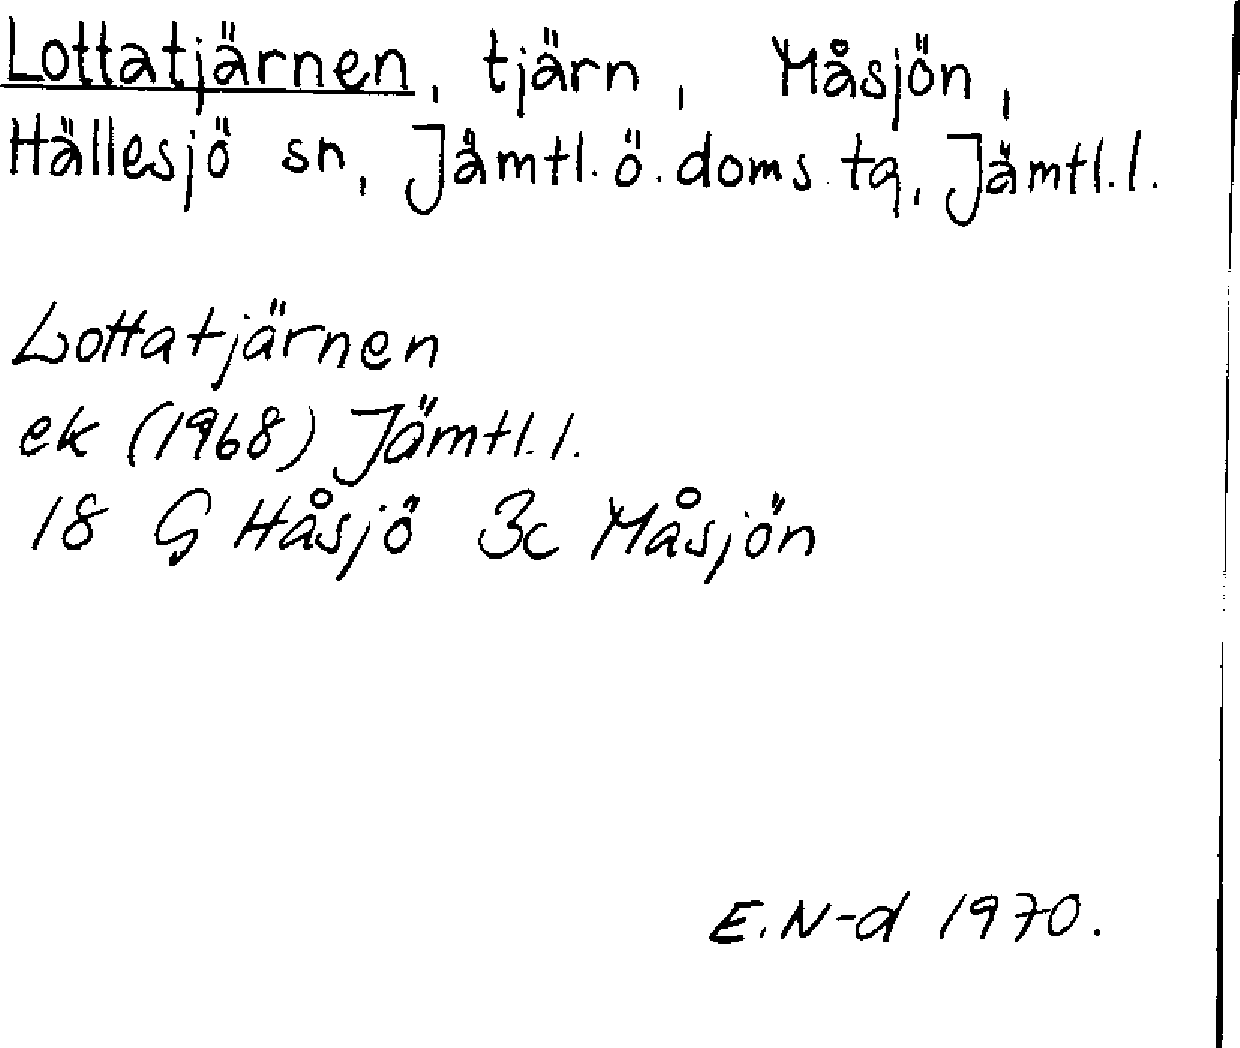 Lottatjärnen, tjärn, Måsjön,
Hällesjö sn, Jämtl. ö. doms. tg, Jämtl. l.
Lottatjärnen
ek (1968) Jämtl. l.
18 G Håsjö 3c Måsjön
E. N-d 1970.